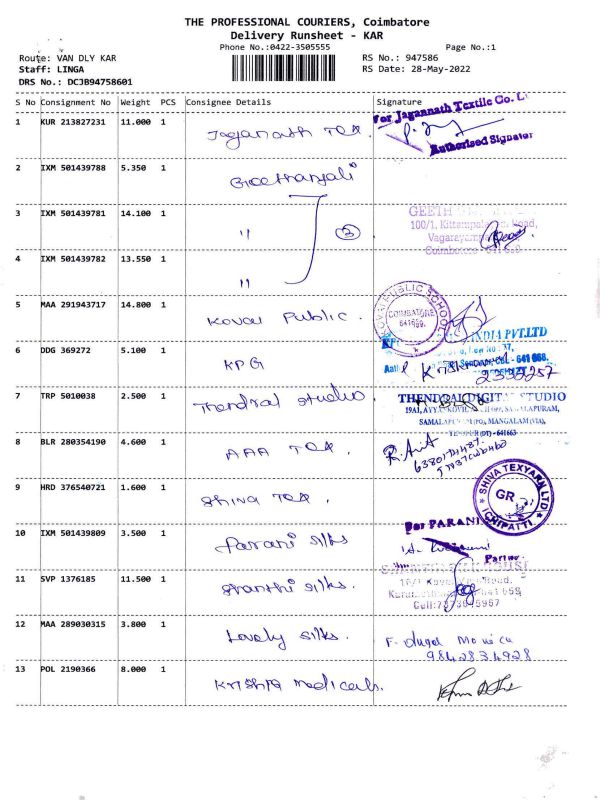 THE PROFESSIONAL COURIERS, Coimbatore
Delivery Runsheet - KAR
Phone No.:0422-3505555
Page No.:1
Route: VAN DLY KAR
RS No.: 947586
Staff: LINGA
RS Date: 28-May-2022
DRS No.: DCJB94758601
S No Consignment No Weight PCS Consignee Details Signature
1 KUR 213827231 11.000 1 Jaganath Tex. For Jagannath Textile Co. L
Authorised Signator
2 IXM 501439788 5.350 1 Geethanjali
3 IXM 501439781 14.100 1 " 3 GEETH
100/1, Kittampalayam Road,
Coimbatore 641659
4 IXM 501439782 13.550 1 "
5 MAA 291943717 14.800 1 Kovai Public. KOVAI PUBLIC SCHOOL
COIMBATORE
641659.
6 DDG 369272 5.100 1 KPG INDIA PVT.LTD
641 668.
2332257
7 TRP 5010038 2.500 1 Thendral studio THENDRAL DIGITAL STUDIO
SAMALAPURAM,
MANGALAM(VIA),
641663
8 BLR 280354190 4.600 1 AAA Tex.
9 HRD 376540721 1.600 1 Shiva Tex. SHIVA TEXYARN LTD
GR
ICHIPATTI
10 IXM 501439809 3.500 1 Parani silks For PARANI
Partner
11 SVP 1376185 11.500 1 Shanthi silks. Road,
641659
Cell:
12 MAA 289030315 3.800 1 Lovely silks. F. Monica
9842834928
13 POL 2190366 8.000 1 Krishna medicals.